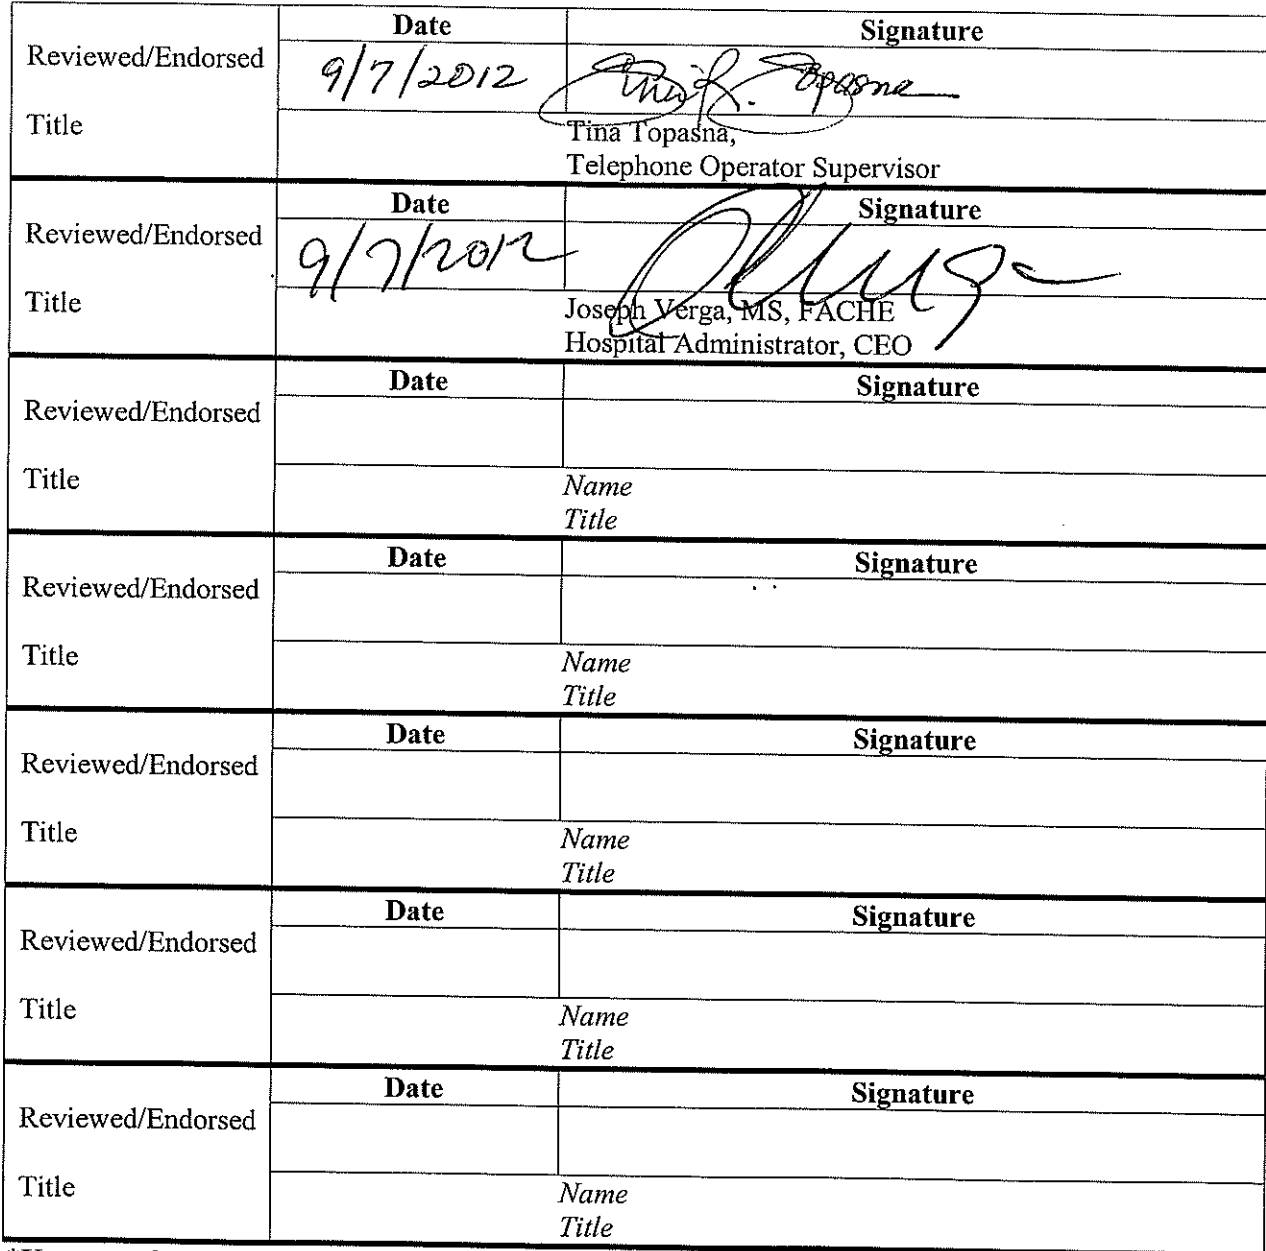 Date Signature
Reviewed/Endorsed 9/7/2012 Tina R. Topasna
Title Tina Topasna,
Telephone Operator Supervisor
Date Signature
Reviewed/Endorsed 9/7/2012
Title Joseph Verga, MS, FACHE
Hospital Administrator, CEO
Date Signature
Reviewed/Endorsed
Title Name
Title
Date Signature
Reviewed/Endorsed
Title Name
Title
Date Signature
Reviewed/Endorsed
Title Name
Title
Date Signature
Reviewed/Endorsed
Title Name
Title
Date Signature
Reviewed/Endorsed
Title Name
Title